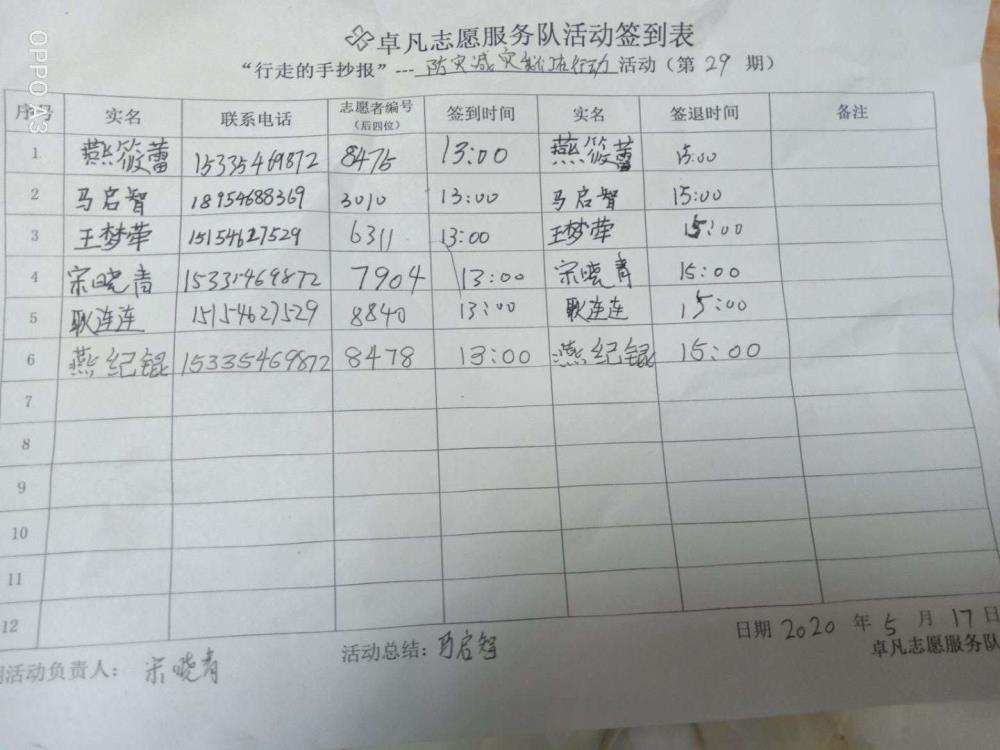 卓凡志愿服务队活动签到表
“行走的手抄报”---防灾减灾 行动活动（第29期）
序号 实名 联系电话 志愿者编号（后四位） 签到时间 实名 签退时间 备注
1 燕筱蕾 15335469872 8475 13:00 燕筱蕾 15:00
2 马启智 18954688369 3010 13:00 马启智 15:00
3 王梦华 15154627529 6311 13:00 王梦华 15:00
4 宋晓青 15335469872 7904 13:00 宋晓青 15:00
5 耿连连 15154627529 8840 13:00 耿连连 15:00
6 燕纪锟 15335469872 8478 13:00 燕纪锟 15:00
7
8
9
10
11
12
日期 2020 年 5 月 17 日
活动负责人： 宋晓青 活动总结：马启智 卓凡志愿服务队
OPPO A3